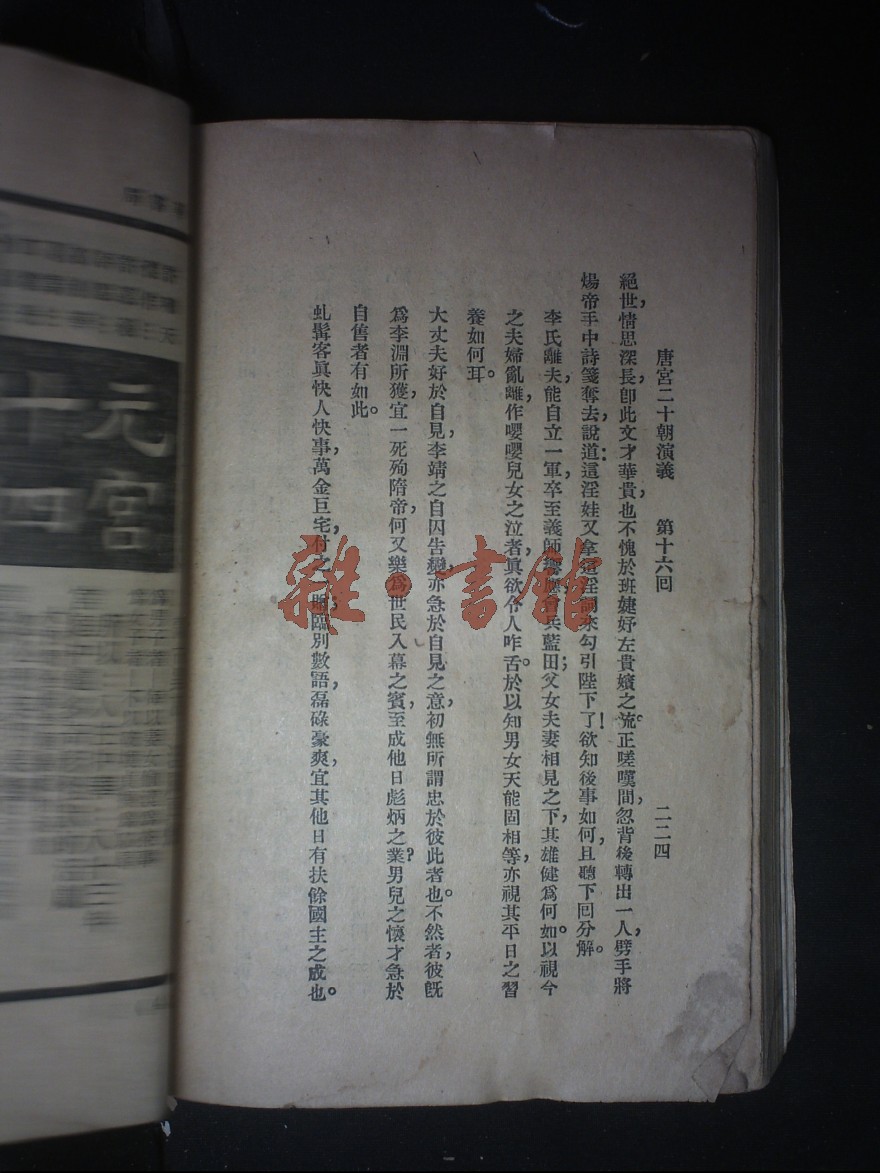 唐宮二十朝演義　第十六回　二二四
絕世，情思深長，卽此文才華貴，也不愧於班婕妤左貴嬪之流。正嗟嘆間，忽背後轉出一人，劈手將
煬帝手中詩箋奪去，說道：這淫娃又拿這淫詞來勾引陛下了！欲知後事如何，且聽下回分解。
李氏離夫，能自立一軍，卒至義師響應，會兵藍田；父女夫妻相見之下，其雄健爲何如。以視今
之夫婦亂離，作嚶嚶兒女之泣者，眞欲令人咋舌。於以知男女天能固相等，亦視其平日之習
養如何耳。
大丈夫好於自見，李靖之自囚告變，亦急於自見之意，初無所謂忠於彼此者也。不然者，彼旣
爲李淵所獲，宜一死殉隋帝，何又樂爲世民入幕之賓，至成他日彪炳之業？男兒之懷才急於
自售者有如此。
虬髯客眞快人快事，萬金巨宅，付之一
臨別數語，磊磥豪爽，宜其他日有扶餘國主之成也。
雜·書館
元宮
十四